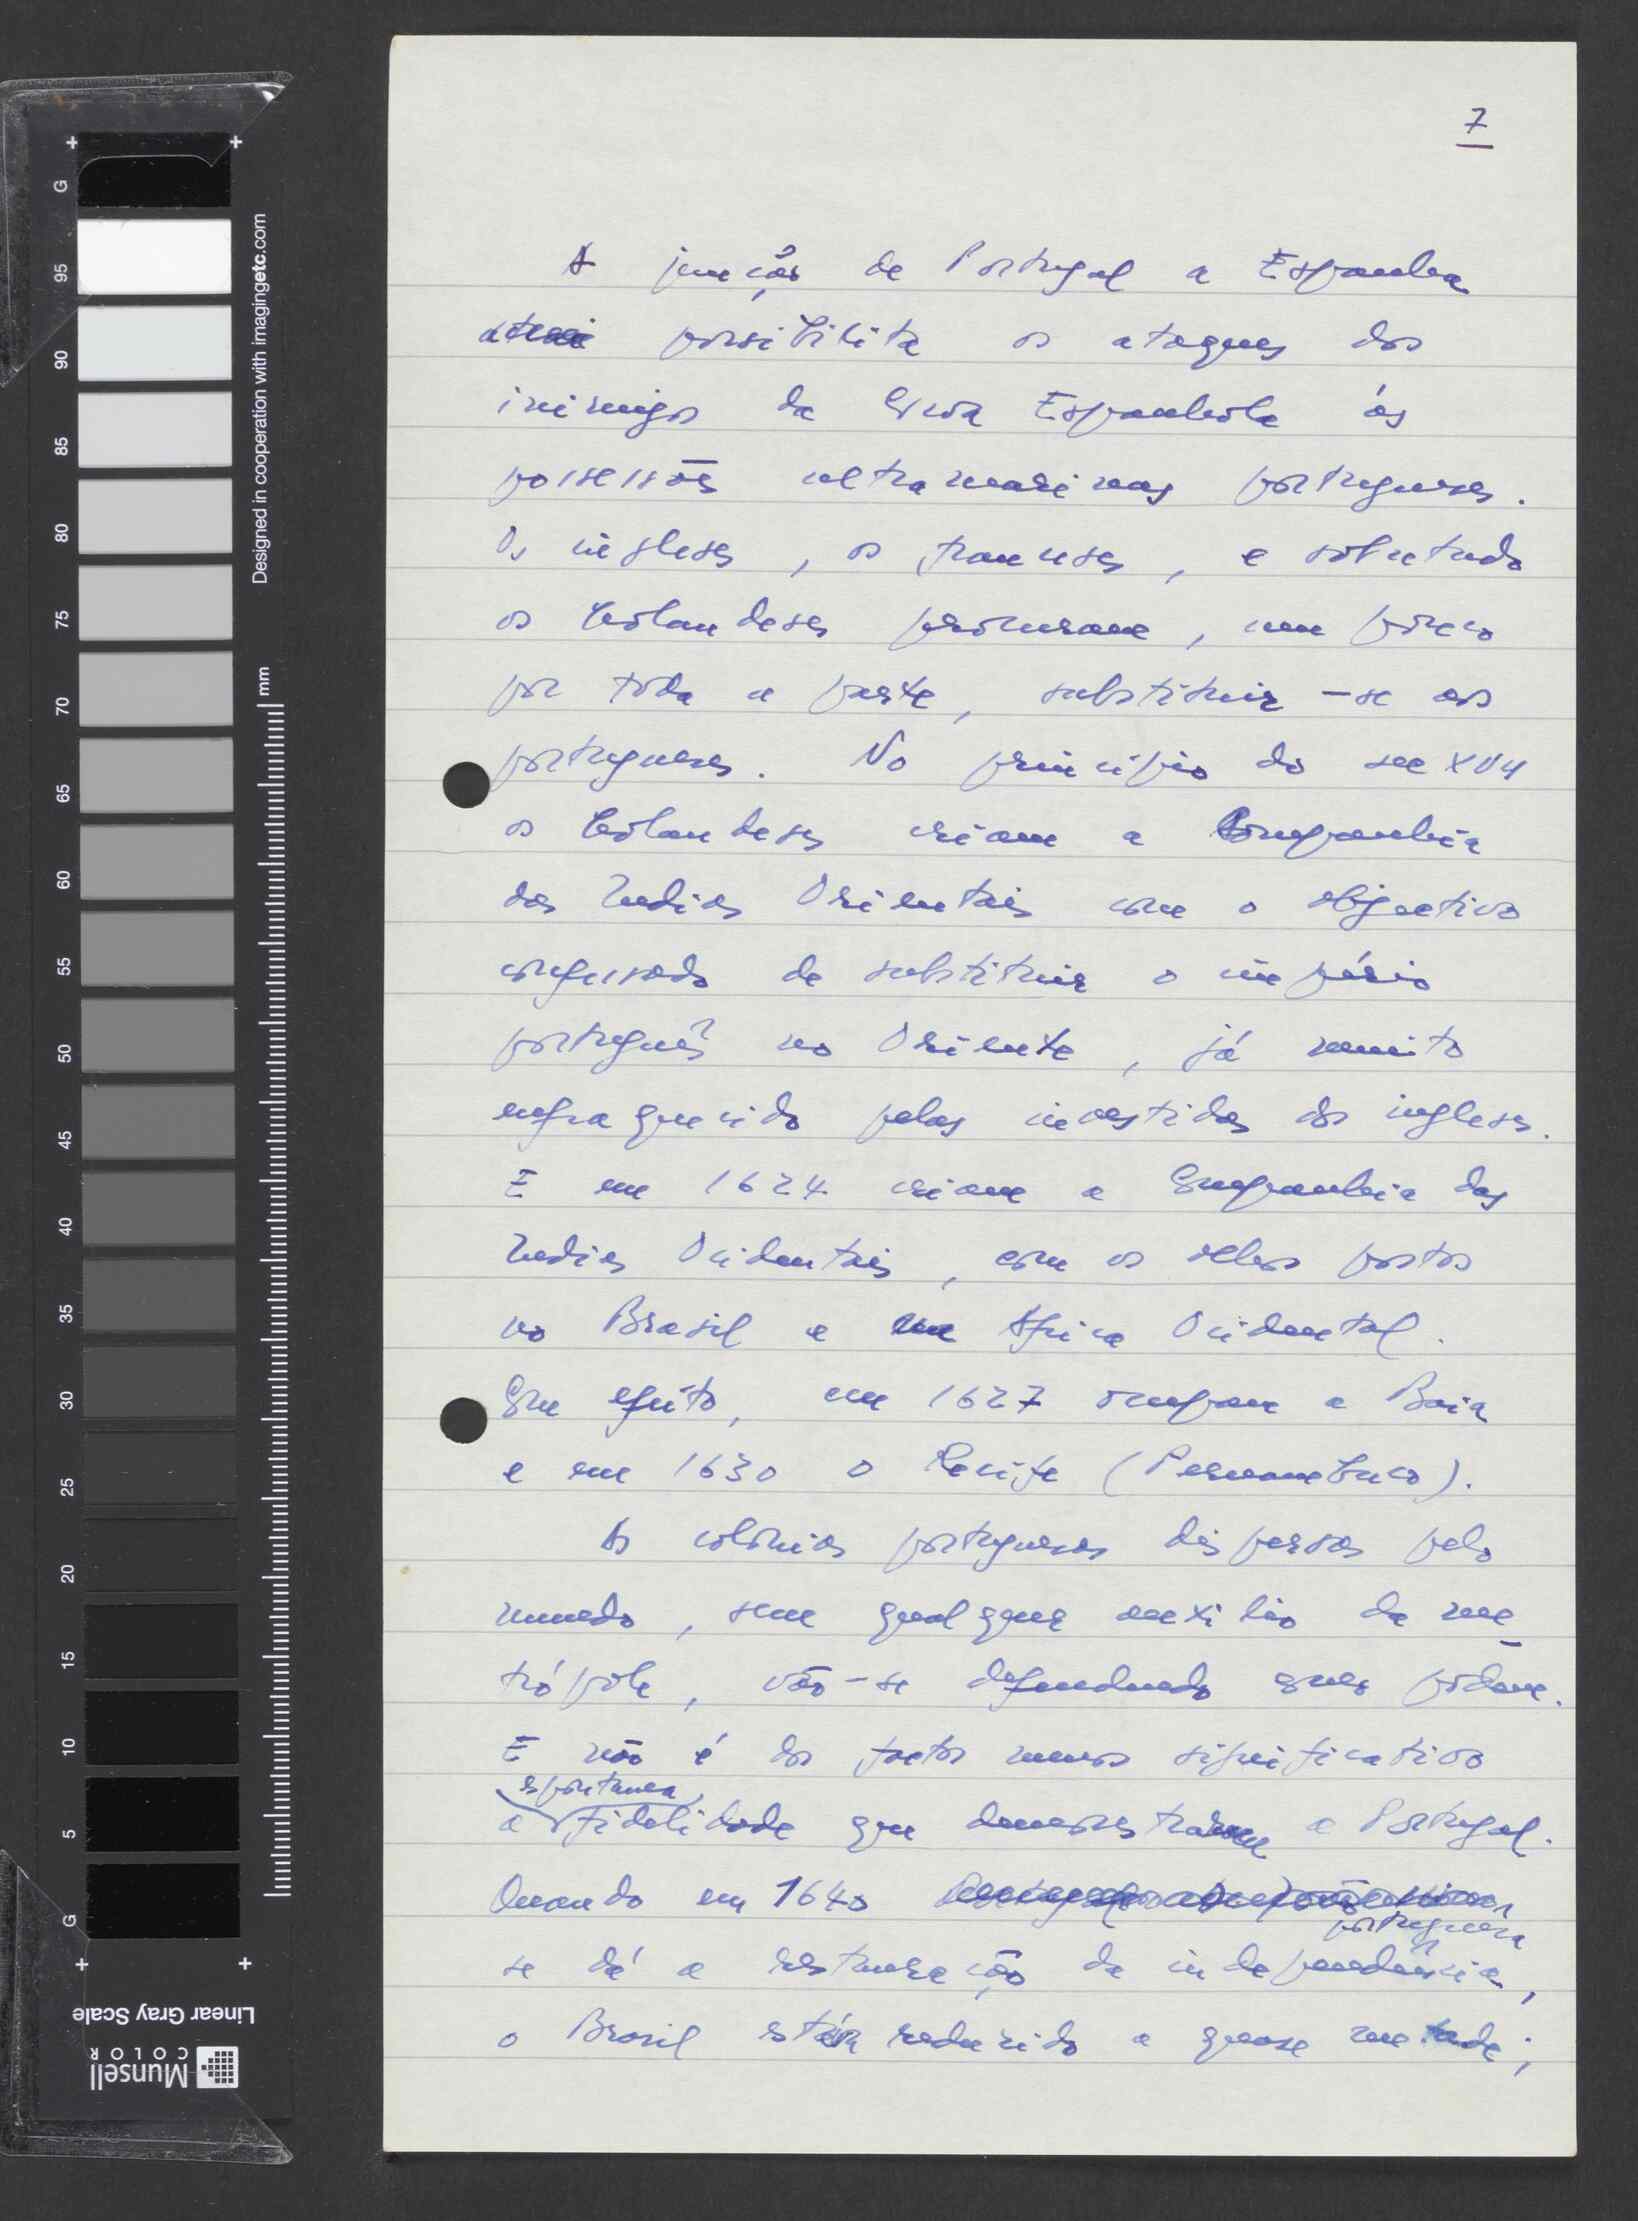 7
A junção de Portugal a Espanha
possibilita os ataques dos
inimigos da Coroa Espanhola às
possessões ultramarinas portuguesas.
Os ingleses, os franceses, e sobretudo
os holandeses procuram, um pouco
por toda a parte, substituir-se aos
portugueses. No princípio do sec XVII
os holandeses criam a Companhia
das Indias Orientais com o objectivo
confessado de substituir o império
português no Oriente, já muito
enfraquecido pelas investidas dos ingleses.
E em 1624 criam a Companhia das
Indias Ocidentais, com os olhos postos
no Brasil e na Africa Ocidental.
Com efeito, em 1627 ocupam a Baia
e em 1630 o Recife (Pernambuco).
As colónias portuguesas dispersas pelo
mundo, sem qualquer auxilio da me
trópole, vão-se defendendo como podem.
E não é dos factos menos significativo
espontanea
a fidelidade que demonstraram a Portugal.
Quando em 1640
portuguesa
se dá a restauração da independência,
o Brasil está reduzido a quase metade;
Designed in cooperation with imagingetc.com
mm
G 95 90 85 80 75 70 65 60 55 50 45 40 35 30 25 20 15 10 5 G
Linear Gray Scale
Munsell
COLOR